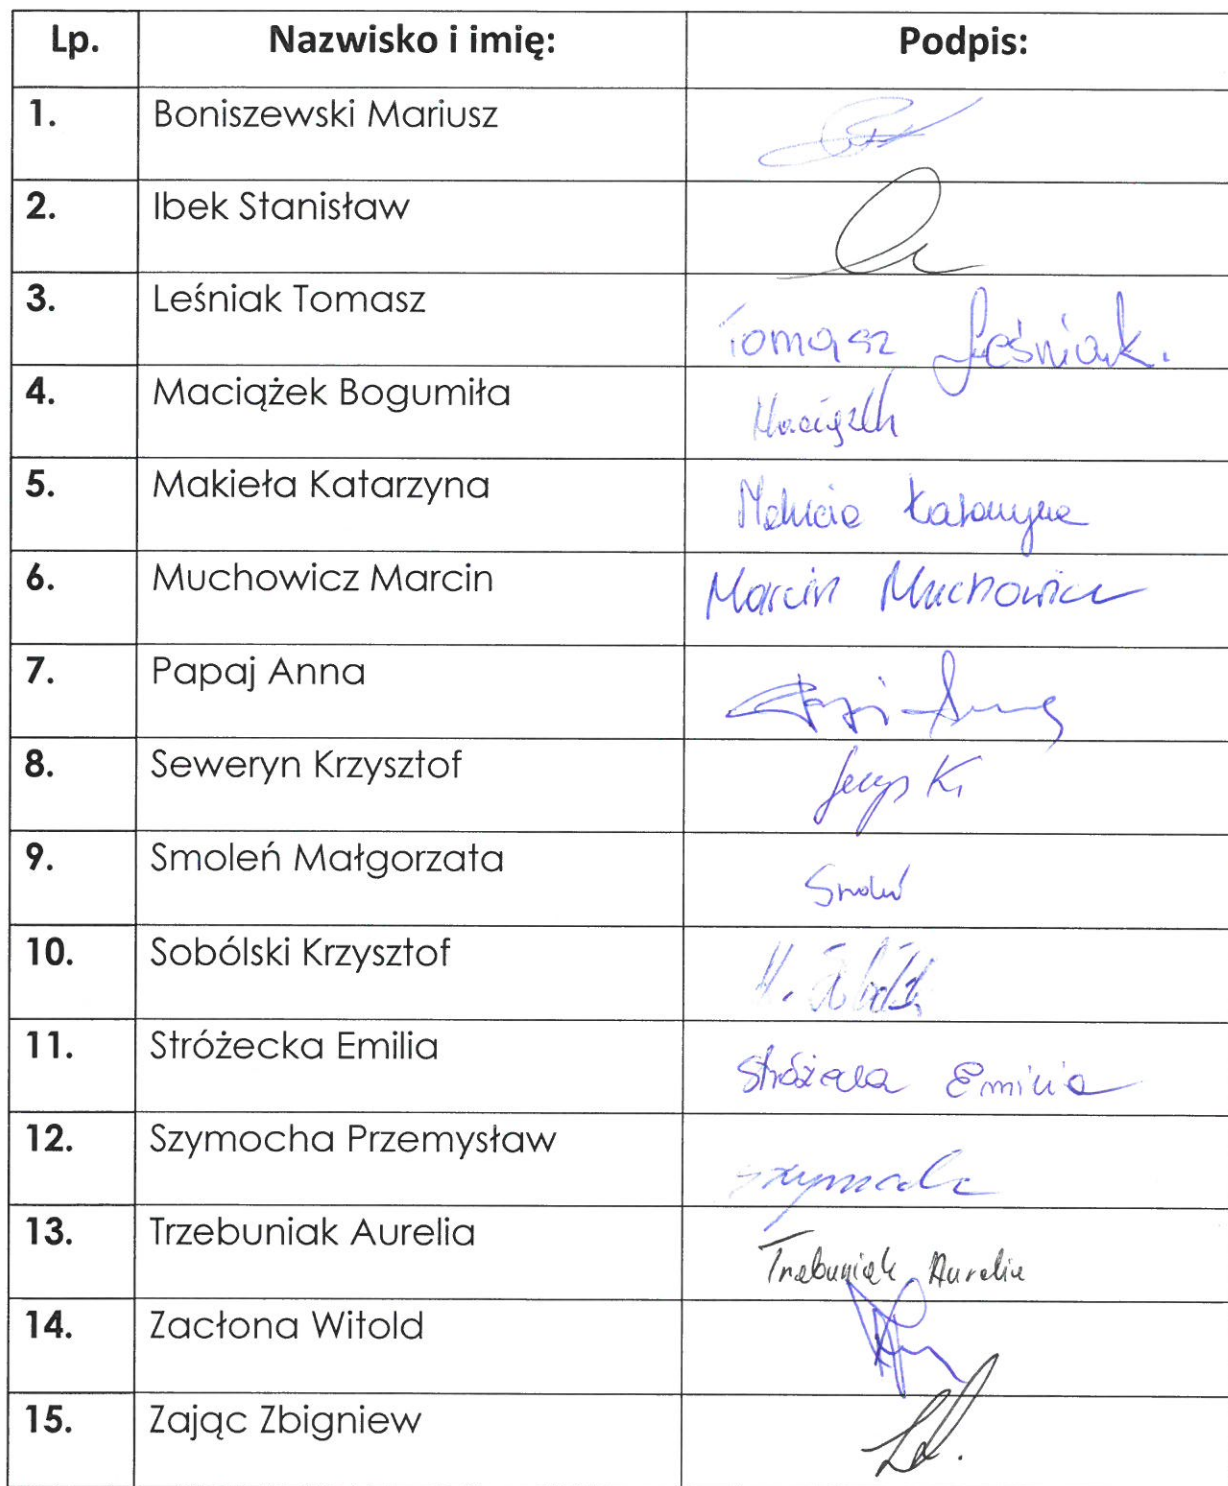 Lp. Nazwisko i imię: Podpis:
1. Boniszewski Mariusz
2. Ibek Stanisław
3. Leśniak Tomasz Tomasz Leśniak.
4. Maciążek Bogumiła
5. Makieła Katarzyna
6. Muchowicz Marcin Marcin Muchowicz
7. Papaj Anna
8. Seweryn Krzysztof
9. Smoleń Małgorzata Smoleń
10. Sobólski Krzysztof
11. Stróżecka Emilia Stróżecka Emilia
12. Szymocha Przemysław
13. Trzebuniak Aurelia Trzebuniak Aurelia
14. Zacłona Witold
15. Zając Zbigniew